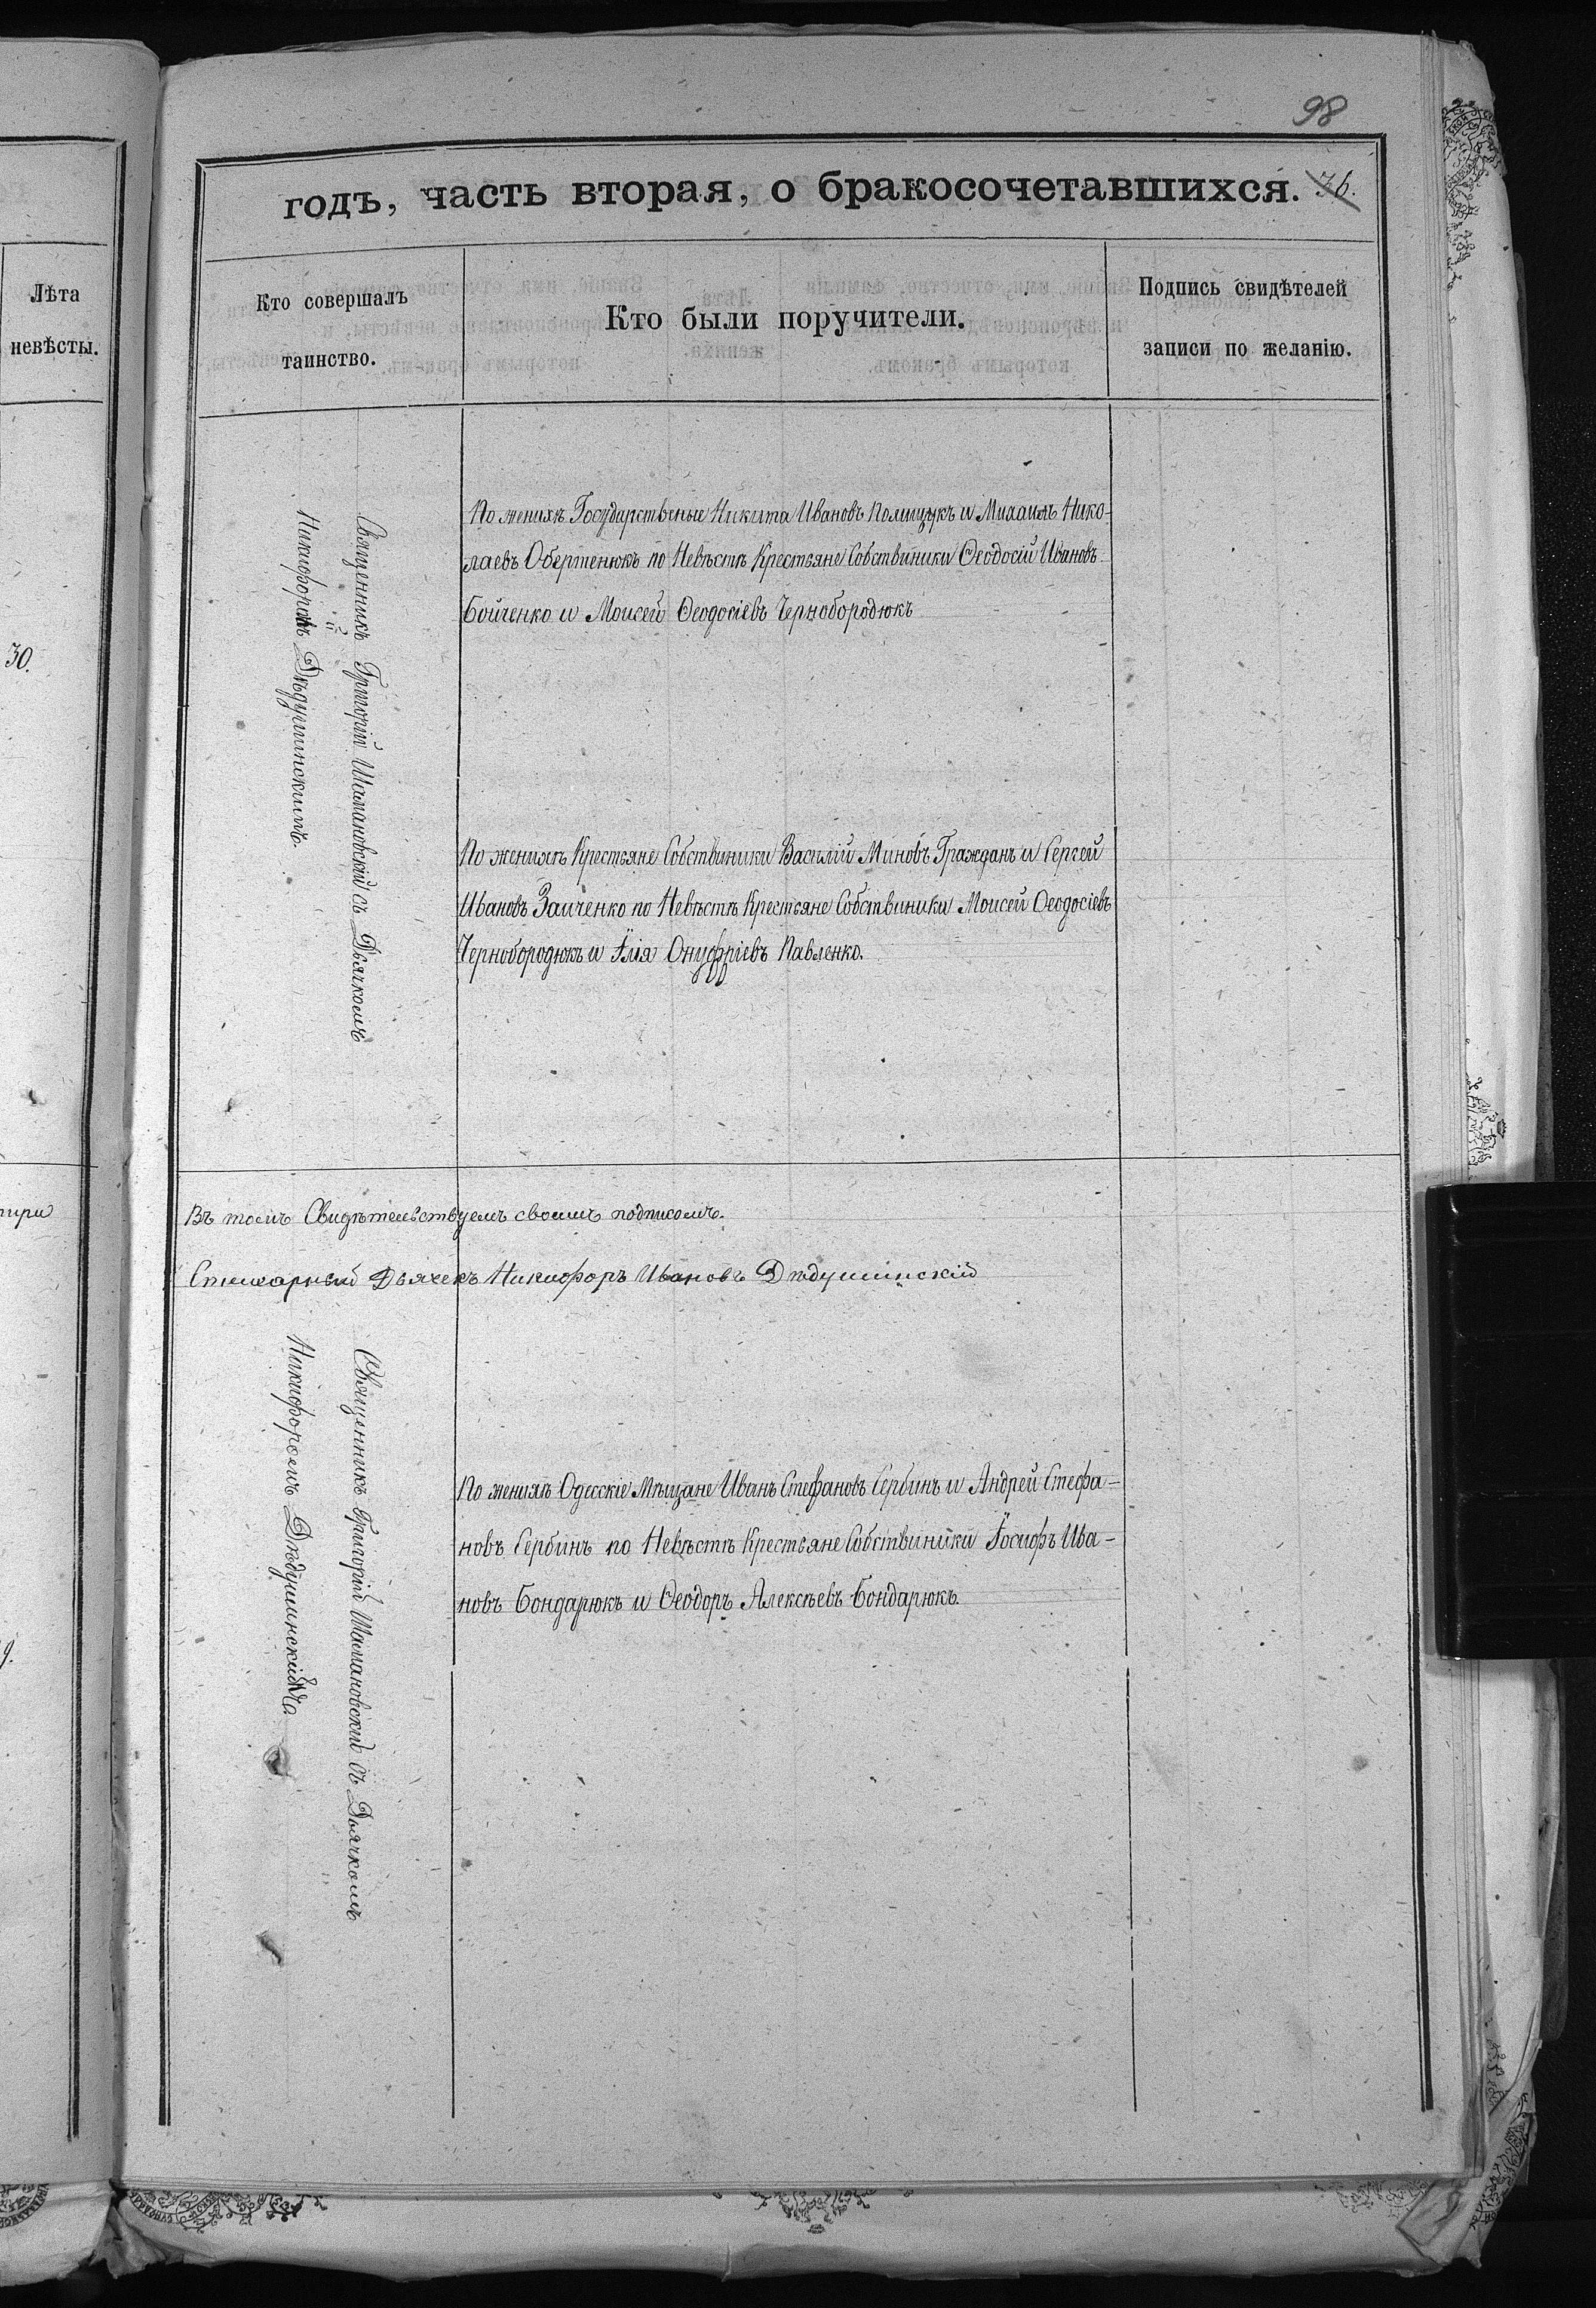 98
годъ, часть вторая, о бракосочетавшихся. 76.
Лѣта
невѣсты.
Кто совершалъ
таинство.
Кто были поручители.
Подпись свидѣтелей
записи по желанію.
30.
Священникъ Григорій Шамановскій съ Дьячкомъ
Никифоромъ Дѣдушинскимъ.
По женихѣ Государственые Никита Ивановъ Полищукъ и Михаилъ Нико-
лаевъ Обертенюкъ по Невѣстѣ Крестьяне Собствиники Ѳеодосій Ивановъ
Бойченко и Моисей Ѳеодосіевъ Чернобородюкъ
По женихѣ Крестьяне Собствиники Василій Миновъ Гражданъ и Сергей
Ивановъ Заиченко по Невѣстѣ Крестьяне Собствиники Моисей Ѳеодосіевъ
Чернобородюкъ и Илія Онуфріевъ Павленко.
Въ томъ Свидѣтельствуемъ своимъ подписомъ.
Дьячекъ Никифоръ Ивановъ Дѣдушинскій
Священникъ Григорій Шамановский съ Дьячкомъ
Никифоромъ Дѣдушинскимъ.
9.
По женихѣ Одесскіе Мѣщане Иванъ Стефановъ Сербинъ и Андрей Стефа-
новъ Сербинъ по Невѣстѣ Крестьяне Собствиники Іосифъ Ива-
новъ Бондарюкъ и Ѳеодоръ Алексѣевъ Бондарюкъ.